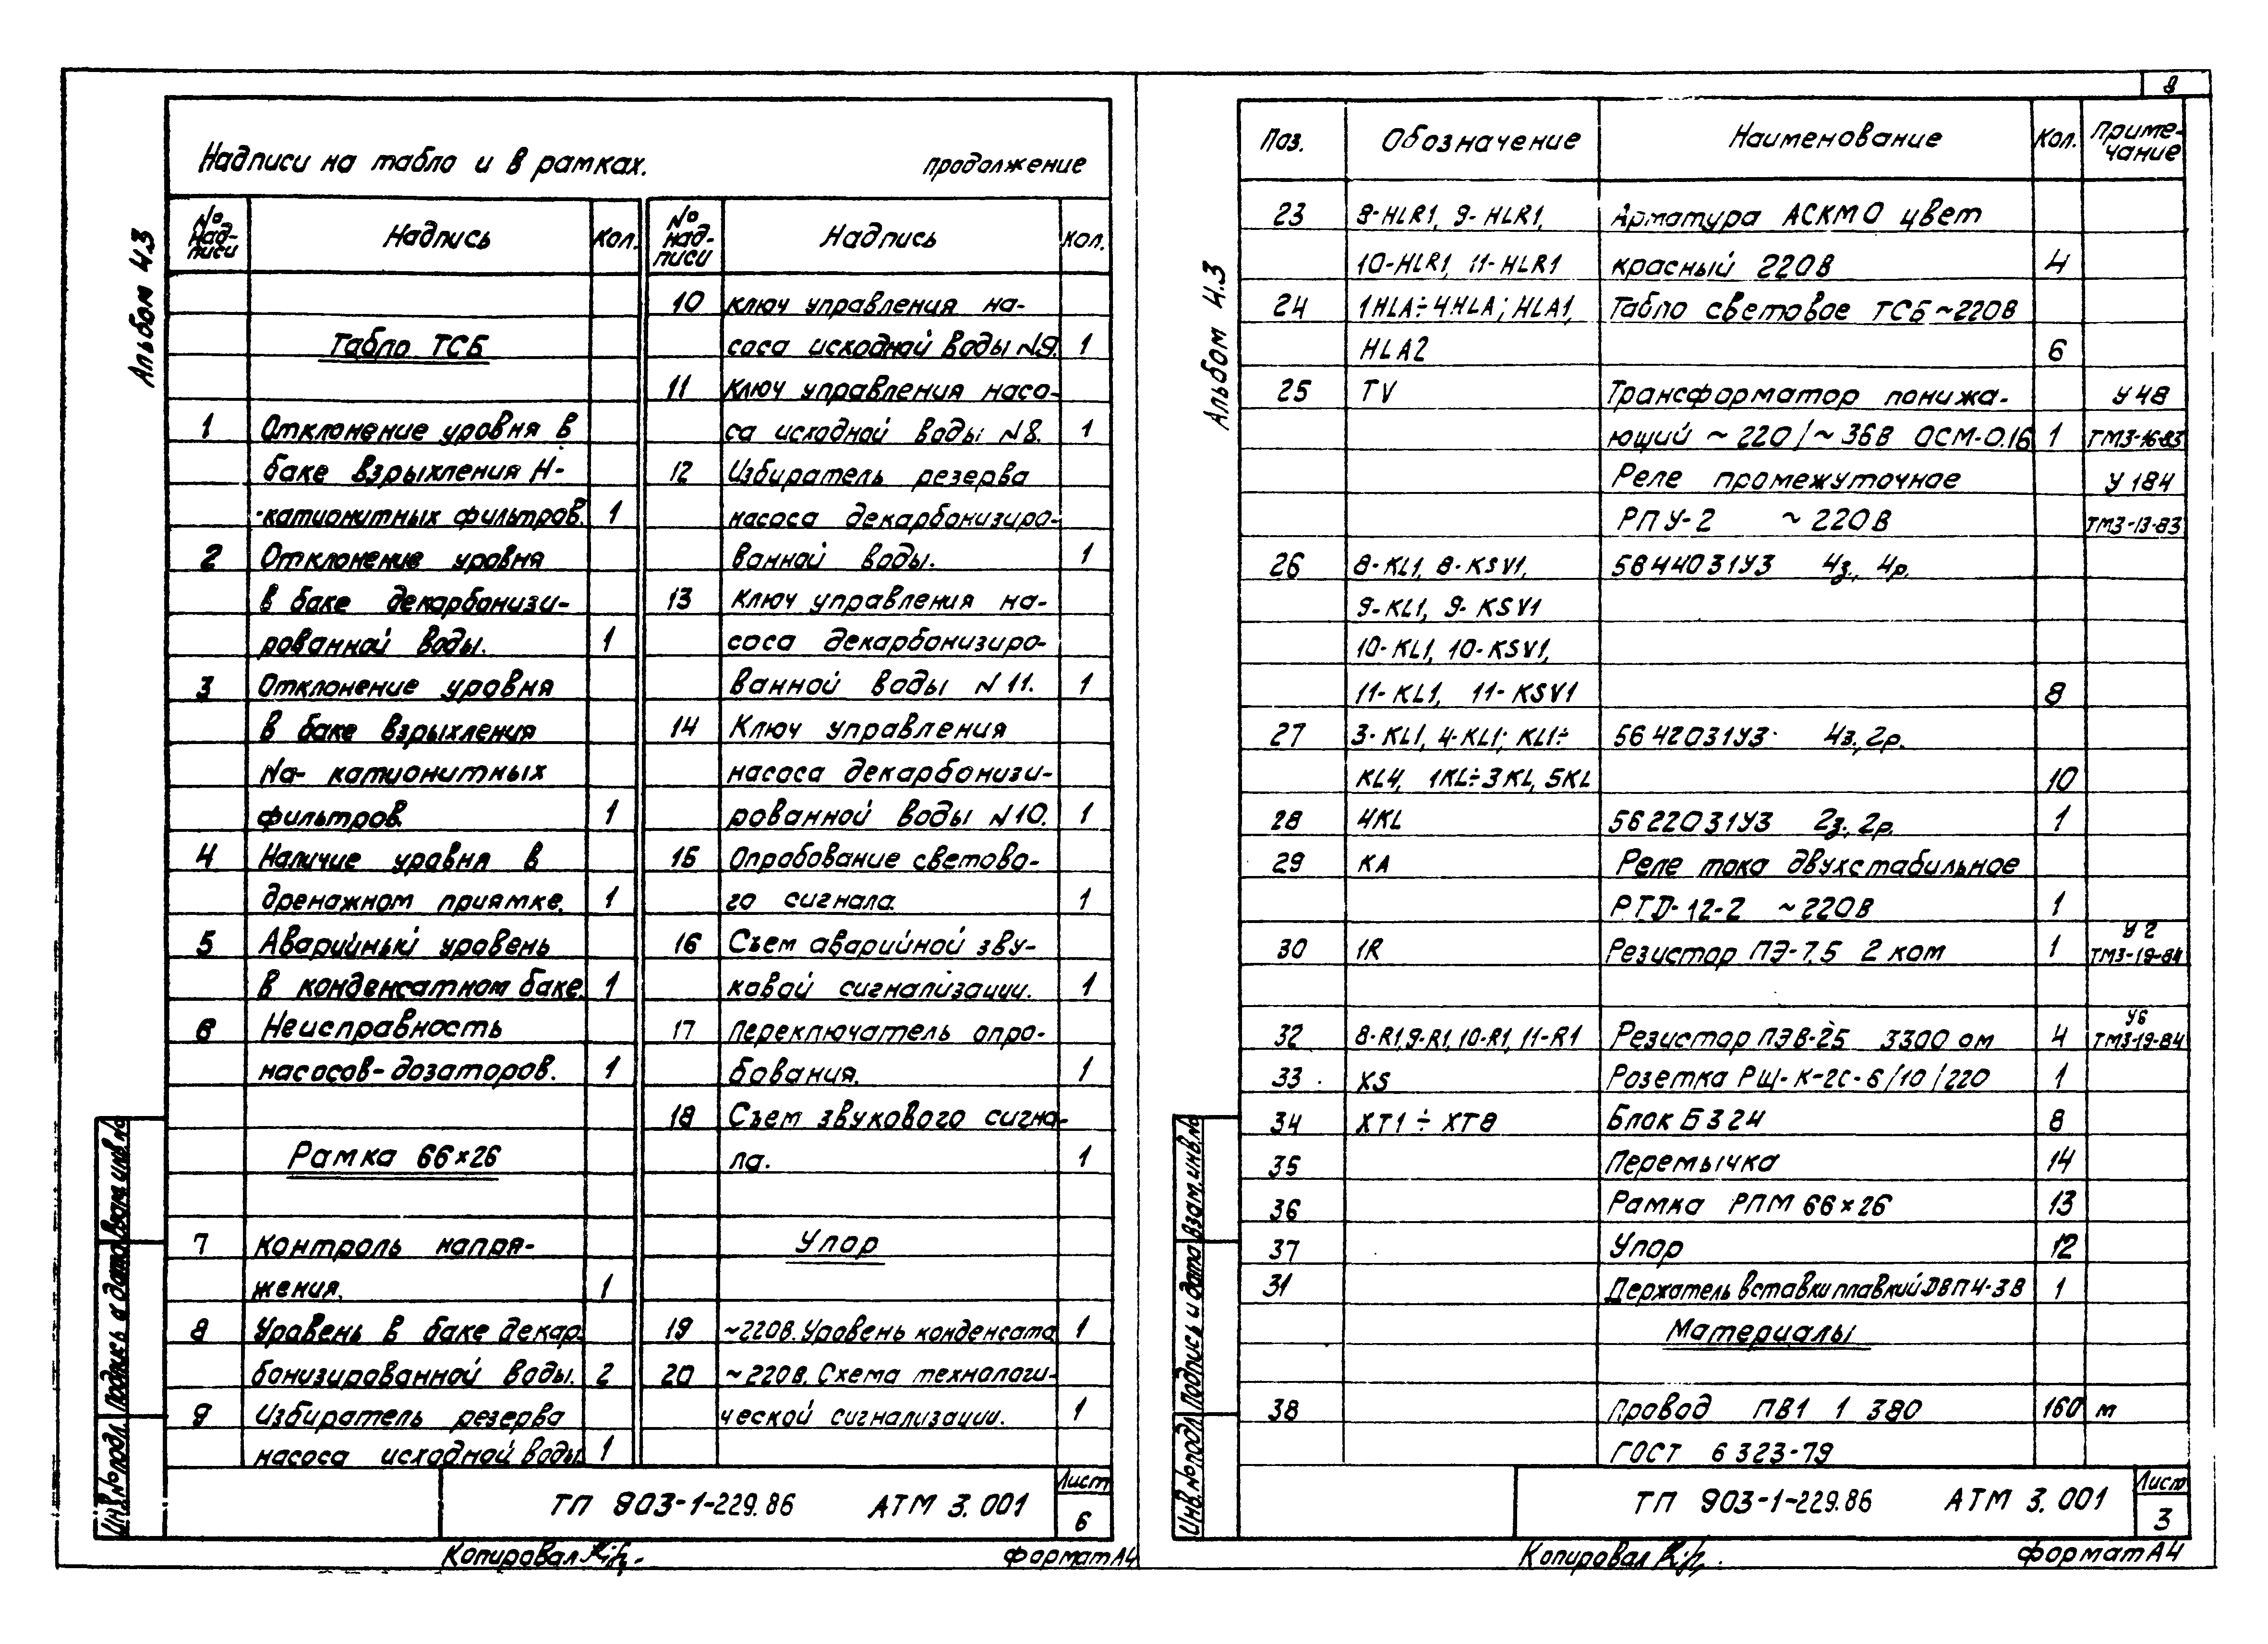 8
Альбом 4.3
Надписи на табло и в рамках. продолжение
№ надписи Надпись Кол.
Табло ТСБ
1 Отклонение уровня в
баке взрыхления Н-
-катионитных фильтров. 1
2 Отклонение уровня
в баке декарбонизи-
рованной воды. 1
3 Отклонение уровня
в баке взрыхления
Na- катионитных
фильтров. 1
4 Наличие уровня в
дренажном приямке. 1
5 Аварийный уровень
в конденсатном баке. 1
6 Неисправность
насосов-дозаторов. 1
Рамка 66×26
7 Контроль напря-
жения. 1
8 Уровень в баке декар-
бонизированной воды. 2
9 Избиратель резерва
насоса исходной воды 1
№ надписи Надпись Кол.
10 Ключ управления на-
соса исходной воды №9. 1
11 Ключ управления насо-
са исходной воды №8. 1
12 Избиратель резерва
насоса декарбонизиро-
ванной воды. 1
13 Ключ управления на-
соса декарбонизиро-
ванной воды №11. 1
14 Ключ управления
насоса декарбонизи-
рованной воды №10. 1
15 Опробование светово-
го сигнала. 1
16 Съем аварийной зву-
ковой сигнализации. 1
17 Переключатель опро-
бования. 1
18 Съем звукового сигна-
ла. 1
Упор
19 ~220В. Уровень конденсата 1
20 ~220В. Схема технологи-
ческой сигнализации. 1
Взам. инв. №
Подпись и дата
Инв. № подл.
ТП 903-1-229.86 АТМ 3.001
Лист
6
Копировал
формат А4
Альбом 4.3
Поз. Обозначение Наименование Кол. Приме-
чание
23 8-HLR1, 9-HLR1, Арматура АСКМ О цвет
10-HLR1, 11-HLR1 красный 220В 4
24 1HLA÷4HLA; HLA1, Табло световое ТСБ ~220В
HLA2 6
25 TV Трансформатор понижа- У48
ющий ~220/~36В ОСМ-0.16 1 ТМ3-16-83
Реле промежуточное У184
РПУ-2 ~220В ТМ3-13-83
26 8-KL1, 8-KSV1, 5644031У3 4з., 4р.
9-KL1, 9-KSV1
10-KL1, 10-KSV1,
11-KL1, 11-KSV1 8
27 3-KL1, 4-KL1; KL1÷ 5642031У3 4з., 2р.
KL4, 1KL÷3KL, 5KL 10
28 4KL 5622031У3 2з., 2р. 1
29 KA Реле тока двухстабильное
РТД-12-2 ~220В 1
У2
30 1R Резистор ПЭ-7.5 2 ком 1 ТМ3-19-84
У6
32 8-R1, 9-R1, 10-R1, 11-R1 Резистор ПЭВ-25 3300 ом 4 ТМ3-19-84
33 XS Розетка РЩ-К-2С-6/10/220 1
34 XT1 ÷ XT8 Блок Б324 8
35 Перемычка 14
36 Рамка РПМ 66×26 13
37 Упор 12
31 Держатель вставки плавкий ДВП4-3В 1
Материалы
38 Провод ПВ1 1 380 160 м
ГОСТ 6323-79
Взам. инв. №
Подпись и дата
Инв. № подл.
ТП 903-1-229.86 АТМ 3.001
Лист
3
Копировал
формат А4